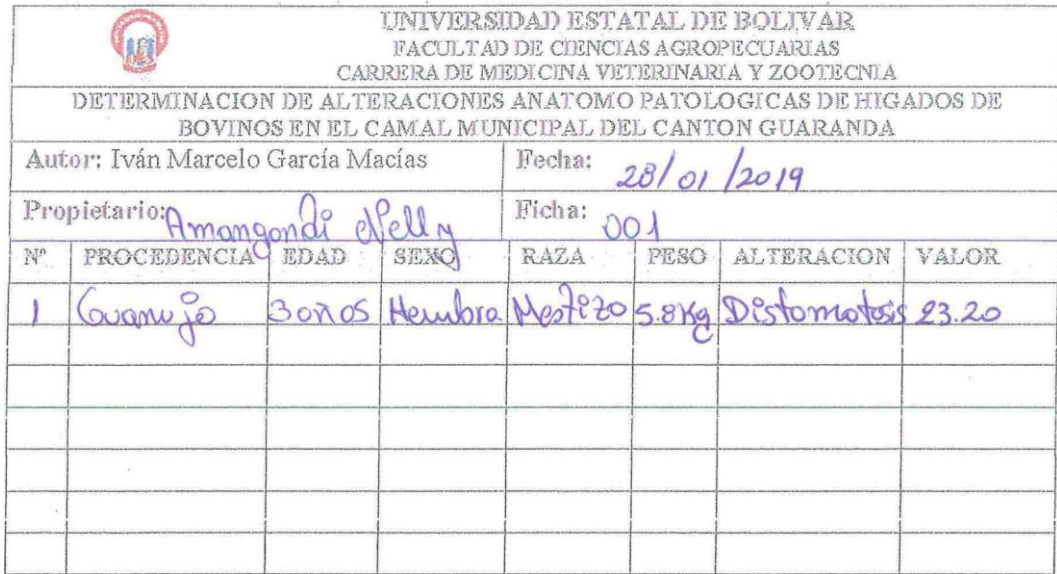 UNIVERSIDAD ESTATAL DE BOLIVAR
FACULTAD DE CIENCIAS AGROPECUARIAS
CARRERA DE MEDICINA VETERINARIA Y ZOOTECNIA
DETERMINACION DE ALTERACIONES ANATOMO PATOLOGICAS DE HIGADOS DE
BOVINOS EN EL CAMAL MUNICIPAL DEL CANTON GUARANDA
Autor: Iván Marcelo García Macías Fecha: 28/01/2019
Propietario: Amangandi Nelly Ficha: 001
Nº PROCEDENCIA EDAD SEXO RAZA PESO ALTERACION VALOR
1 Guanujo 3 años Hembra Mestizo 5.8Kg Distomatosis 23.20